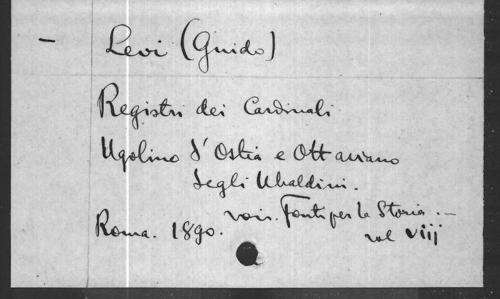 — Levi (Guido)
Registri dei Cardinali
Ugolino d'Ostia e Ottaviano
degli Ubaldini.
voir. Fonti per la Storia. —
Roma. 1890. vol viij